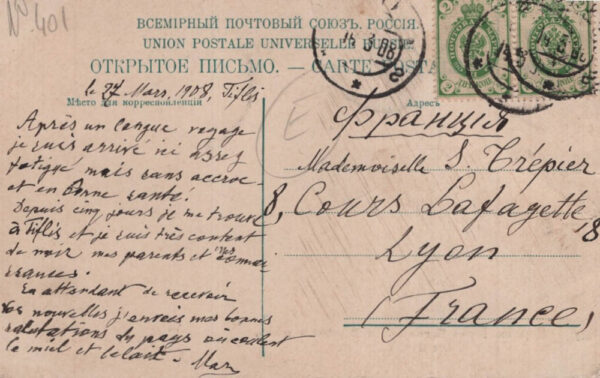 No 401
ВСЕМІРНЫЙ ПОЧТОВЫЙ СОЮЗЪ. РОССІЯ.
UNION POSTALE UNIVERSELLE RUSSIE.
ОТКРЫТОЕ ПИСЬМО. — CARTE POSTALE
Мѣсто для корреспонденціи
Адресъ
le 27 Mars, 1908, Tiflis
Après un longue voyage
je suis arrivé ici assez
fatigué mais sans accroc
et en bonne santé!
Depuis cinq jours je me trouve
à Tiflis et je suis très content
de voir mes parents et mes connais-
sances.
En attendant de recevoir
vos nouvelles j'envois mes bonnes
salutations du pays où coulent
le miel et le lait.
E
Франція
Mademoiselle S. Trépier
8, Cours Lafayette, 8
Lyon
(France)
16 3 08